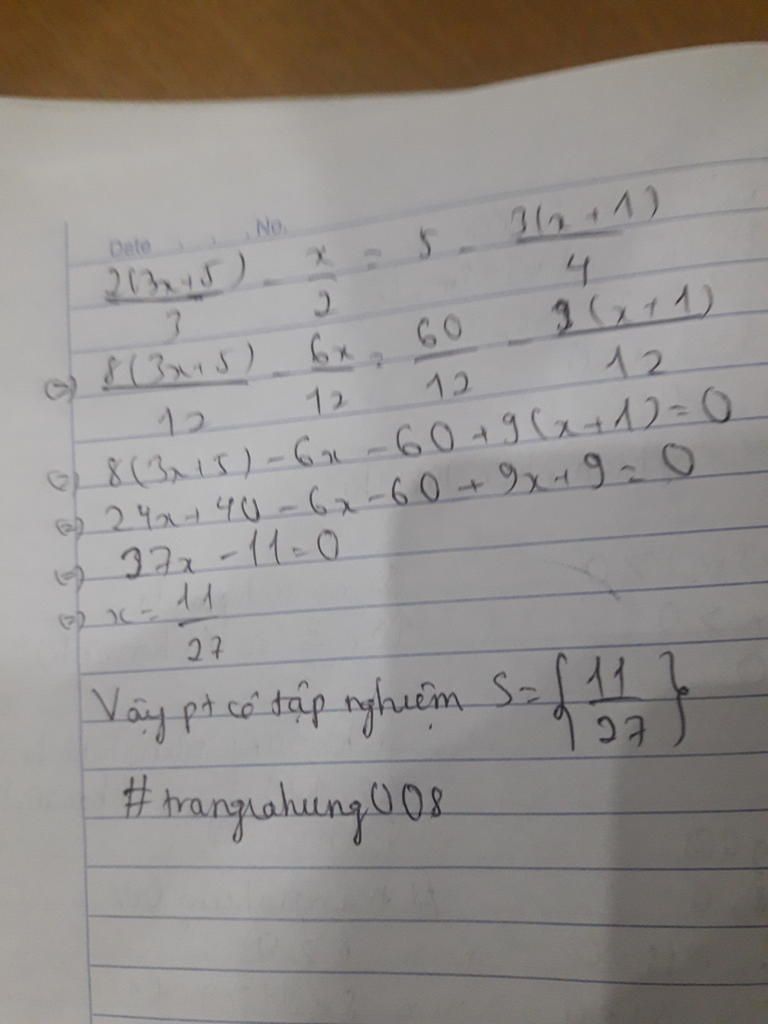 Date . . . No.
2(3x+5)/3 - x/2 = 5 - 3(x+1)/4
⇔ 8(3x+5)/12 - 6x/12 = 60/12 - 9(x+1)/12
⇔ 8(3x+5) - 6x - 60 + 9(x+1) = 0
⇔ 24x + 40 - 6x - 60 + 9x + 9 = 0
⇔ 27x - 11 = 0
⇔ x = 11/27
Vậy pt có tập nghiệm S = {11/27}
#trangiahung008